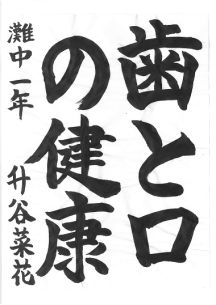 歯と口
の健康
灘中一年
升谷菜花